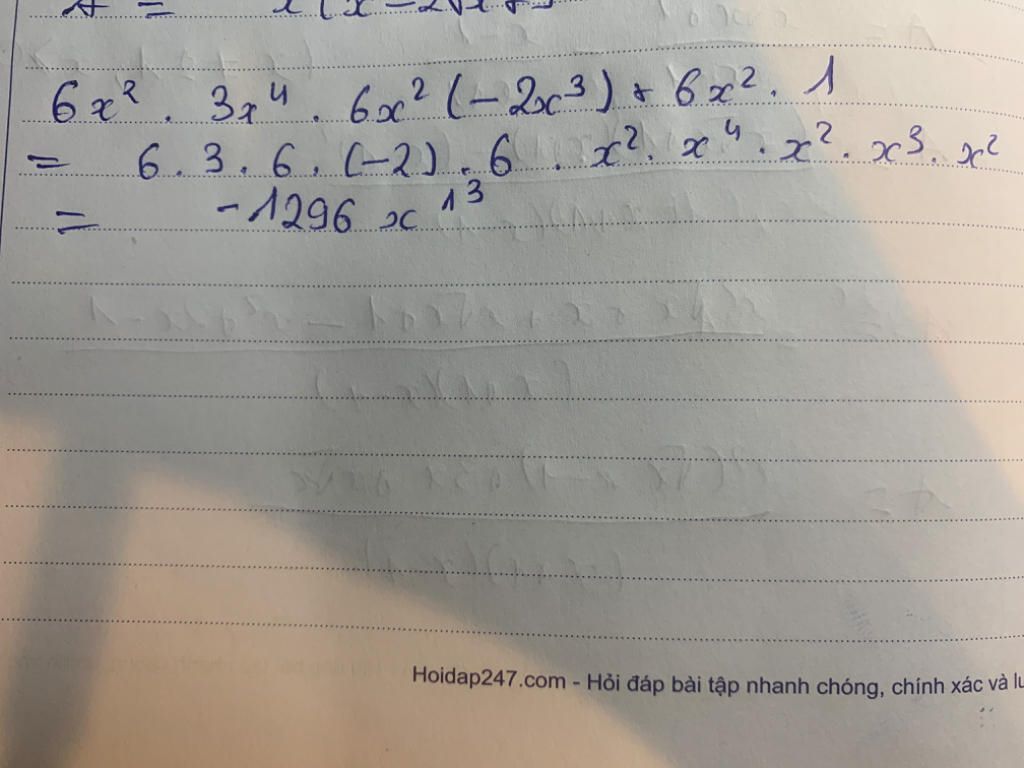 6x² . 3x⁴ . 6x² (-2x³) + 6x² . 1
= 6 . 3 . 6 . (-2) . 6 . x² . x⁴ . x² . x³ . x²
= -1296 x¹³
Hoidap247.com - Hỏi đáp bài tập nhanh chóng, chính xác và